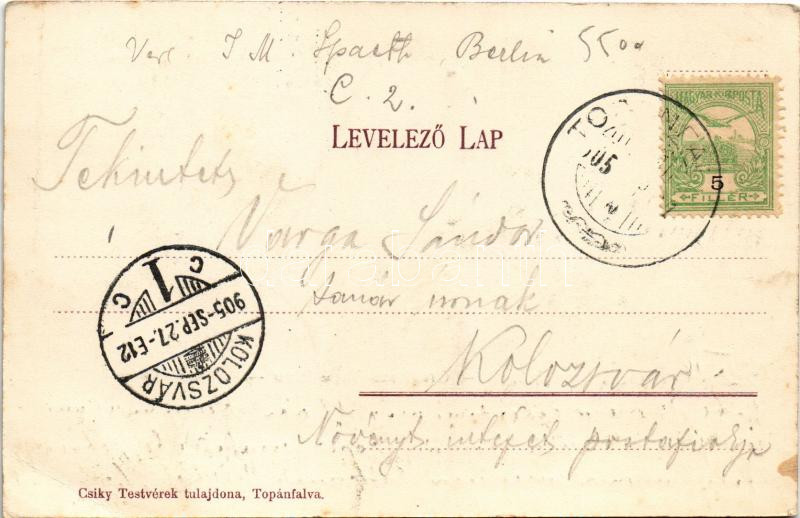 Verl. I M Spaeth Berlin 5500
C. 2.
LEVELEZŐ LAP
MAGYAR KIR. POSTA
5
FILLÉR
905
Tekintetes
Varga Sándor
tanár urnak
Kolozsvár
Növényt. intézet
KOLOZSVÁR
905-SEP.27.-E12
C 1 C
Csiky Testvérek tulajdona, Topánfalva.